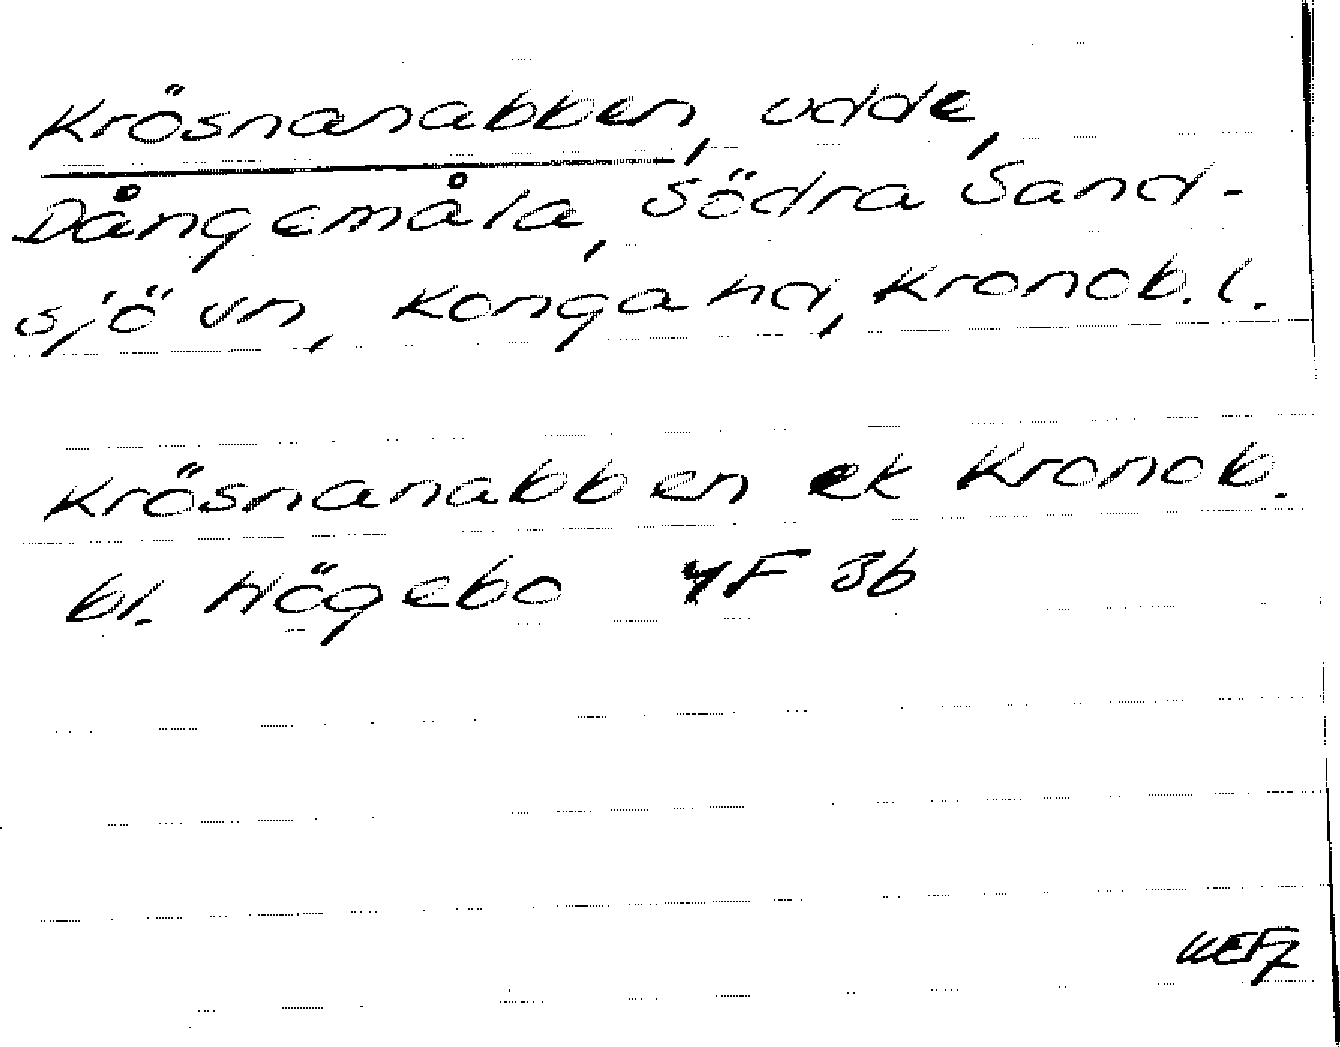 Krösnanabben, udde,
Dångemåla, Södra Sand-
sjö vn, Konga hd, Kronob. l.
Krösnanabben ek Kronob.
bl. Högebo 4F 3b